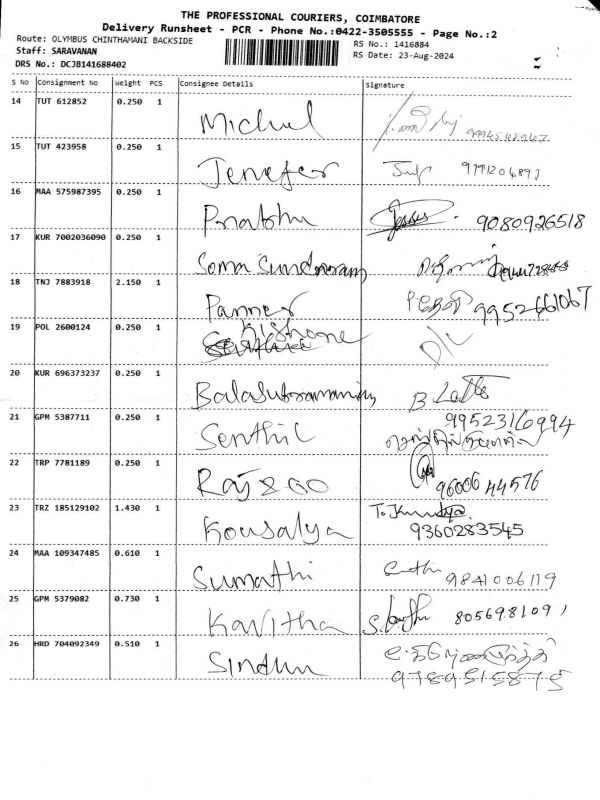 THE PROFESSIONAL COURIERS, COIMBATORE
Delivery Runsheet - PCR - Phone No.:0422-3505555 - Page No.:2
Route: OLYMBUS CHINTHAMANI BACKSIDE
RS No.: 1416884
Staff: SARAVANAN
RS Date: 23-Aug-2024
DRS No.: DCJB141688402
S No Consignment No Weight PCS Consignee Details Signature
14 TUT 612852 0.250 1 Michel
15 TUT 423958 0.250 1 Jenefer
16 MAA 575987395 0.250 1 Prabhu 9080926518
17 KUR 7002036090 0.250 1 Soma Sundaram
18 TNJ 7883918 2.150 1 Panner 9952661067
19 POL 2600124 0.250 1 Kishore D/L
20 KUR 696373237 0.250 1 Balasubramaniam
21 GPM 5387711 0.250 1 Senthil 9952316994
22 TRP 7781189 0.250 1 9600644576
23 TRZ 185129102 1.430 1 Kousalya 9360283545
24 MAA 109347485 0.610 1 Sumathi 9841006119
25 GPM 5379082 0.730 1 Kavitha 8056981091
26 HRD 704092349 0.510 1 Sindhu 9789515875